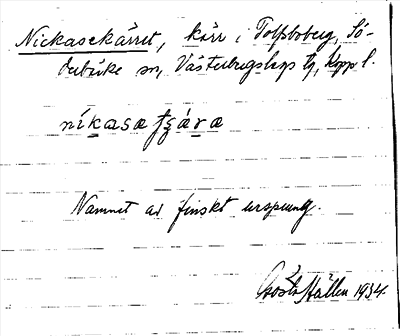 Nickasekärret, kärr i Tolfsboberg, Sö-
derbärke sn, Västerbergslags tg, Kopp. l.
níkasa
Namnet av finskt ursprung.
Gösta Hallen 1934.